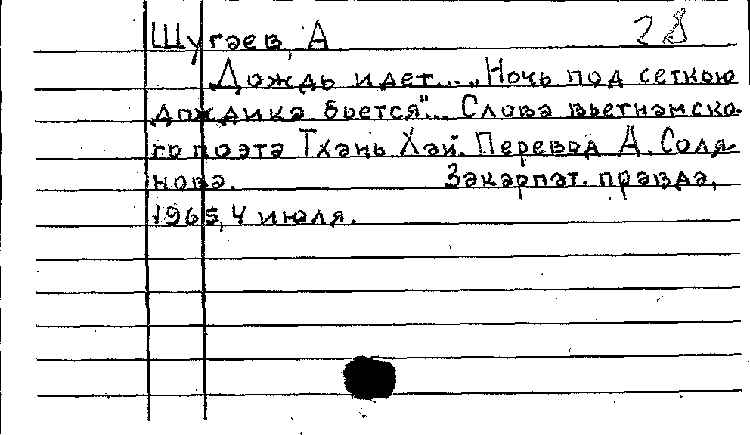 Шугаев, А 28
Дождь идет... "Ночь под сеткою
дождика бьется"... Слова вьетнамско-
го поэта Тхань Хай. Перевод А. Соля-
нова. Закарпат. правда,
1965, 4 июля.